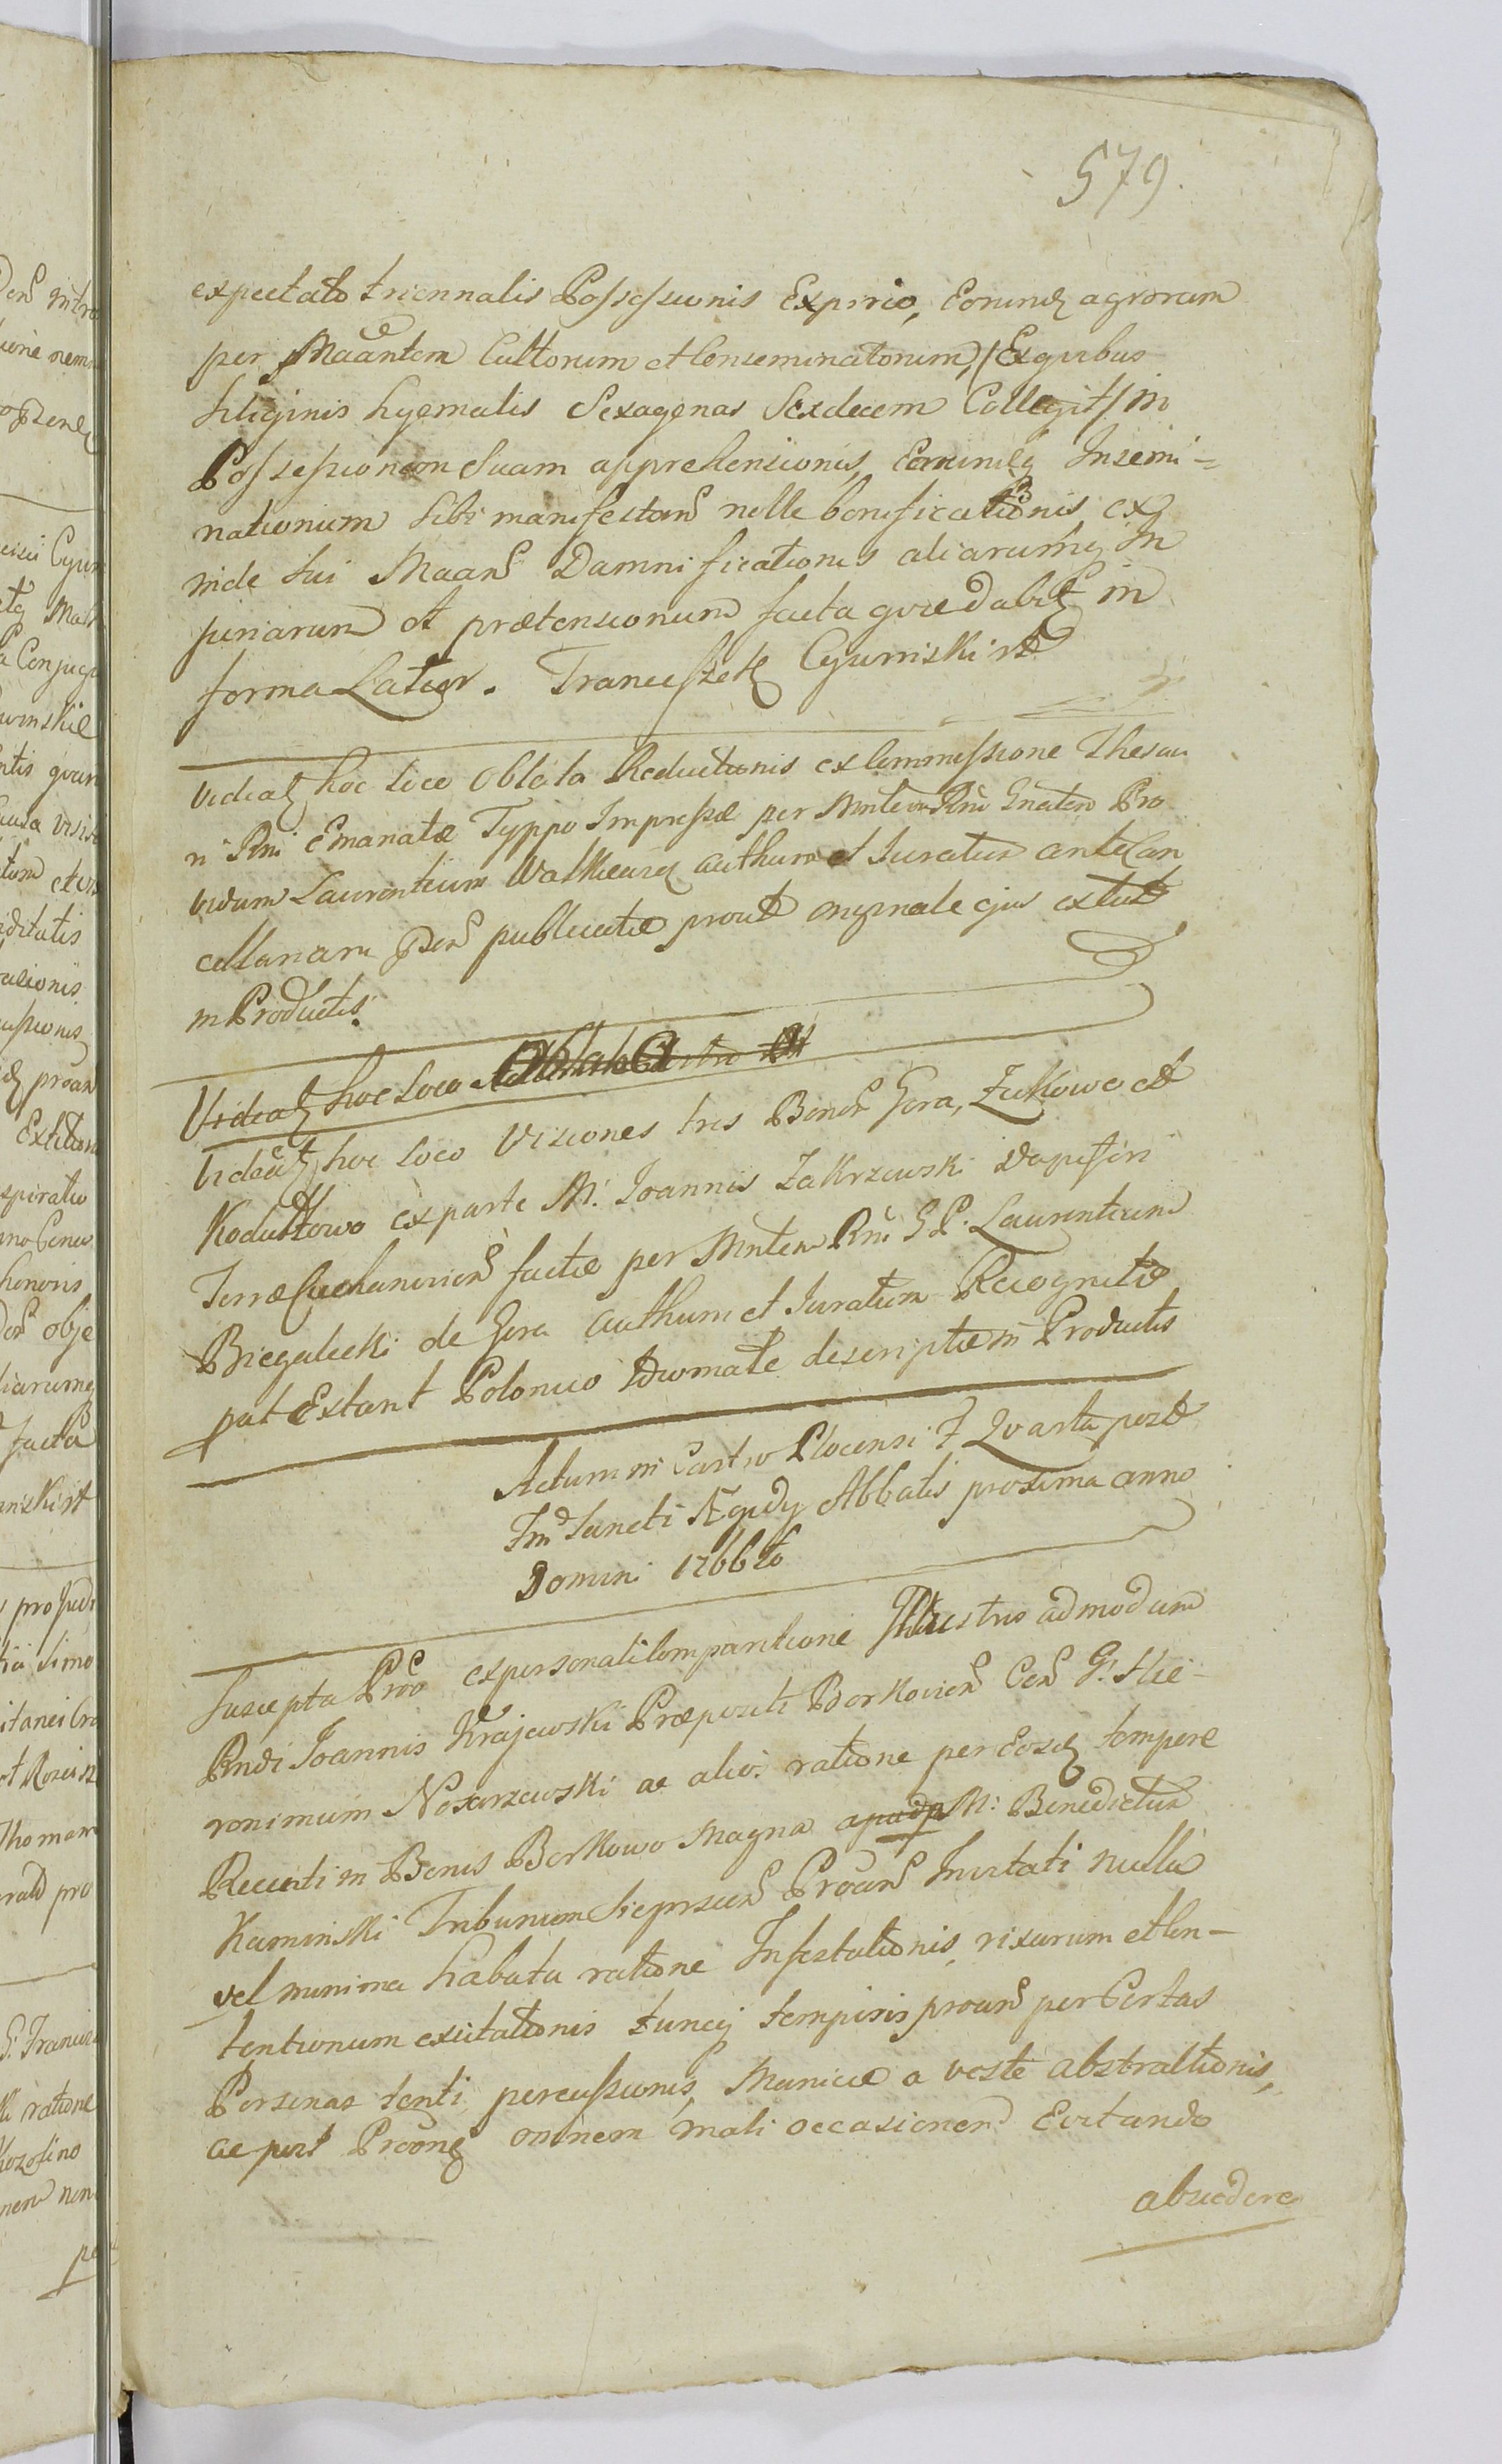 579.
expectato triennalis Possessionis Expirio, Eorund agrorum
per Maantem Cultorum et Conseminatorum, /Exquibus
siliginis hyemalis Sexagenas Sexdecem Collegit/ in
Possessionem Suam apprehensionis, Earumq Insemi=
nationum sibi manifestans nolle bonificationis, ex
inde sui Maans Damnificationis aliarumq In
juriarum et prætensionum facta quæ dabit in
forma Latior. Franciszek Cyuminski
Videat hoc loco Oblata Reductionis ex Commissione Thesau
ri Rni Emanatæ Typpo Impressæ per Mintem Rni Gnalem Pro
vidum Laurentium Walkiewicz authum et Juratum ante Can
cellariam Pten publicatæ prout originale ejus extat
in Productis.
Videat hoc loco Oblata
Videant hoc loco Visiones tres Bonor Gora, Zukowo et
Koduttowo ex parte M. Joannis Zakrzewski Dapiferi
Terræ Ciechanovien factæ per Mintem Rni G P. Laurentium
Biegalecki de Gora authum et Juratum Recognitæ
put Extant Polonico Idiomate descriptæ in Productis
Actum in Castro Plocensi F Quarta post
Fm Sancti Ægidy Abbatis proxima anno
Domini 1766to
Suscepta Proo ex personali Comparitione Illustris admodum
Rndi Joannis Krajewski Præpositi Borkovien Con G. Hie-
ronimum Nosarzewski ac alios ratione per Eosd tempore
Recenti in Bonis Borkowo Magna apud p M: Benedictum
Kaminski Tribunum Sieprscen Proans Invitati nulla
vel minima habita ratione Infestationis, rixarum et Con-
tentionum excitationis tuncq temporis proans per Certas
Personas tenti, percussionis, Manicæ a veste abstractionis,
ac post Proong omnem mali occasionem Evitando
abscedere